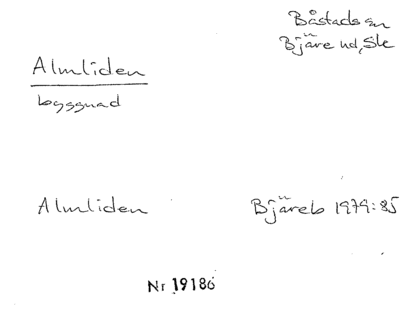 Båstads sn
Bjäre hd, Sk
Almliden
byggnad
Almliden Bjäreb 1979:85
Nr 19186